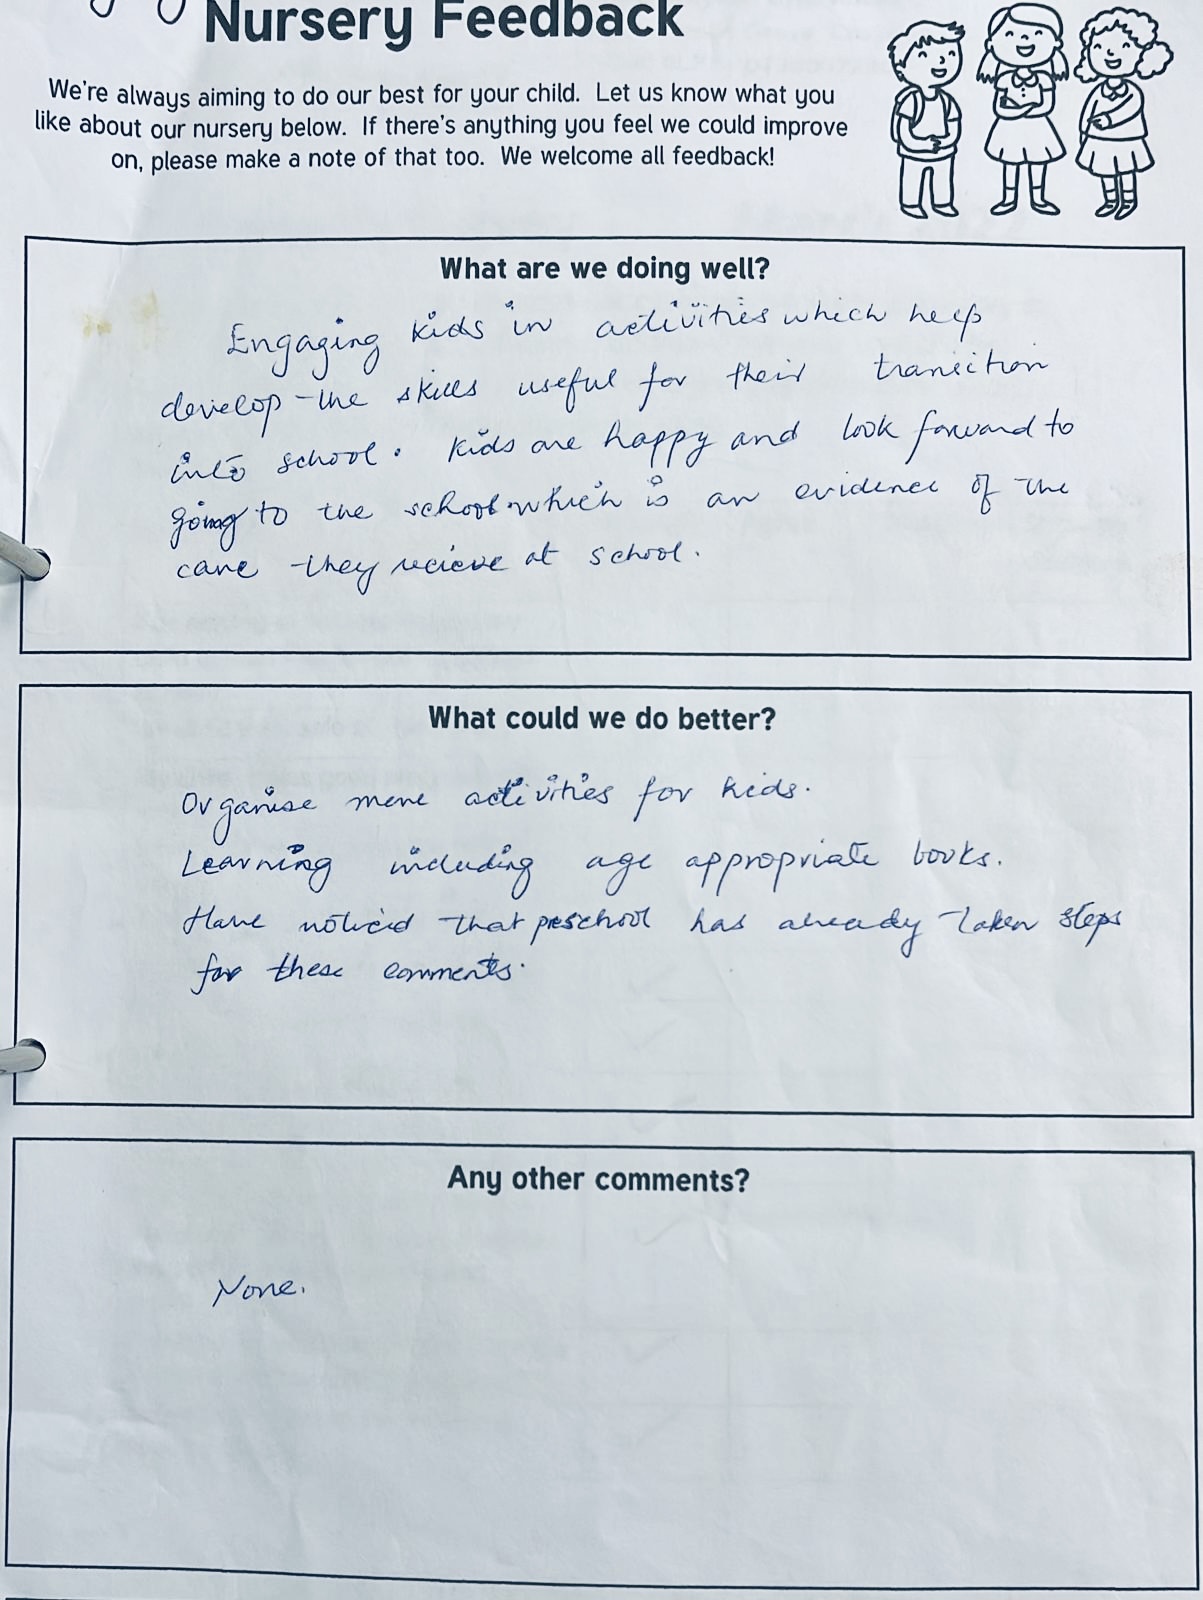 Nursery Feedback
We're always aiming to do our best for your child. Let us know what you
like about our nursery below. If there's anything you feel we could improve
on, please make a note of that too. We welcome all feedback!
What are we doing well?
Engaging kids in activities which help
develop the skills useful for their transition
into school. Kids are happy and look forward to
going to the school which is an evidence of the
care they recieve at school.
What could we do better?
Organise more activities for kids.
Learning including age appropriate books.
Have noticed that preschool has already taken steps
for these comments.
Any other comments?
None.